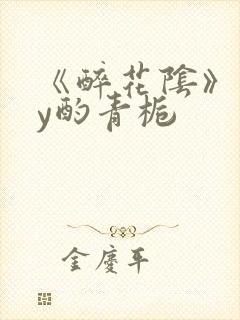 《醉花陰》
y酌青栀
金慶年